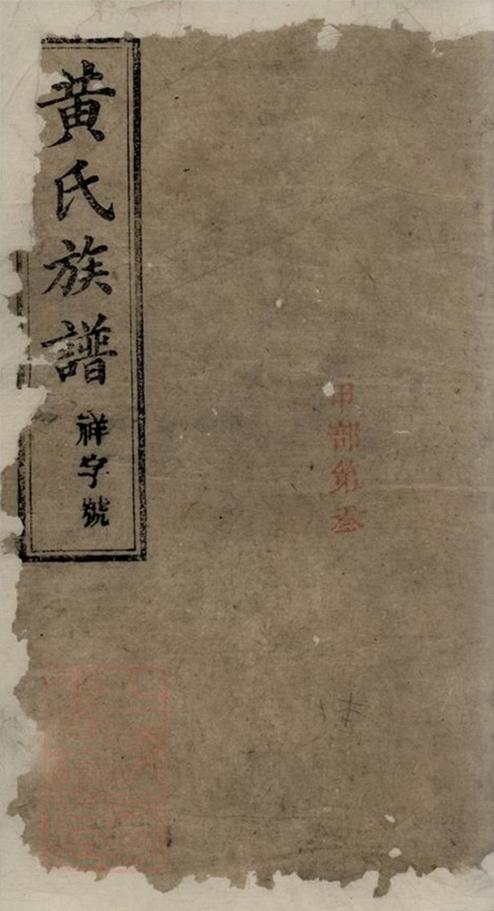 黄氏族譜
祥字號
甲部第叁